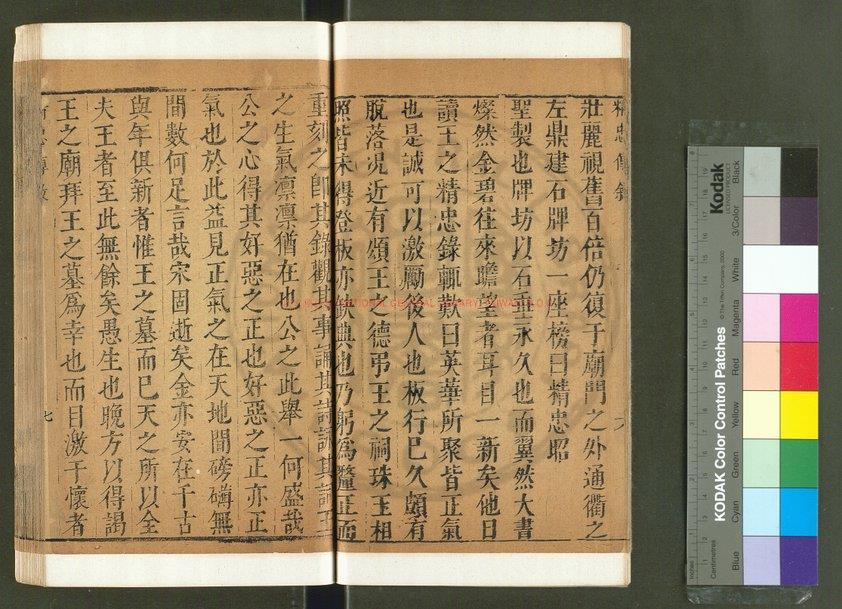 壯麗視舊百倍仍復于廟門之外通衢之
左鼎建石牌坊一座榜曰精忠昭
聖製也牌坊以石垂永久也而翼然大書
燦然金碧往來瞻望者耳目一新矣他日
讀王之精忠錄輒歎曰英華所聚皆正氣
也是誠可以激勵後人也板行已久頗有
脫落況近有頌王之德弔王之祠珠玉相
照皆未得登板亦欽典也乃躬為釐正而
重刻之即其錄觀其事論其詩誦其詞王
之生氣凛凛猶在也公之此舉一何盛哉
公之心得其好惡之正也好惡之正亦正
氣也於此益見正氣之在天地間磅礴無
間數何足言哉宋固逝矣金亦安在千古
與年俱新者惟王之墓而已天之所以全
夫王者至此無餘矣愚生也晚方以得謁
王之廟拜王之墓爲幸也而目激于懷者
精忠傳錄
六
七
Kodak
LICENSED PRODUCT
KODAK Color Control Patches
© The Tiffen Company, 2000
Black
3/Color
White
Magenta
Red
Yellow
Green
Cyan
Blue
Inches
Centimetres